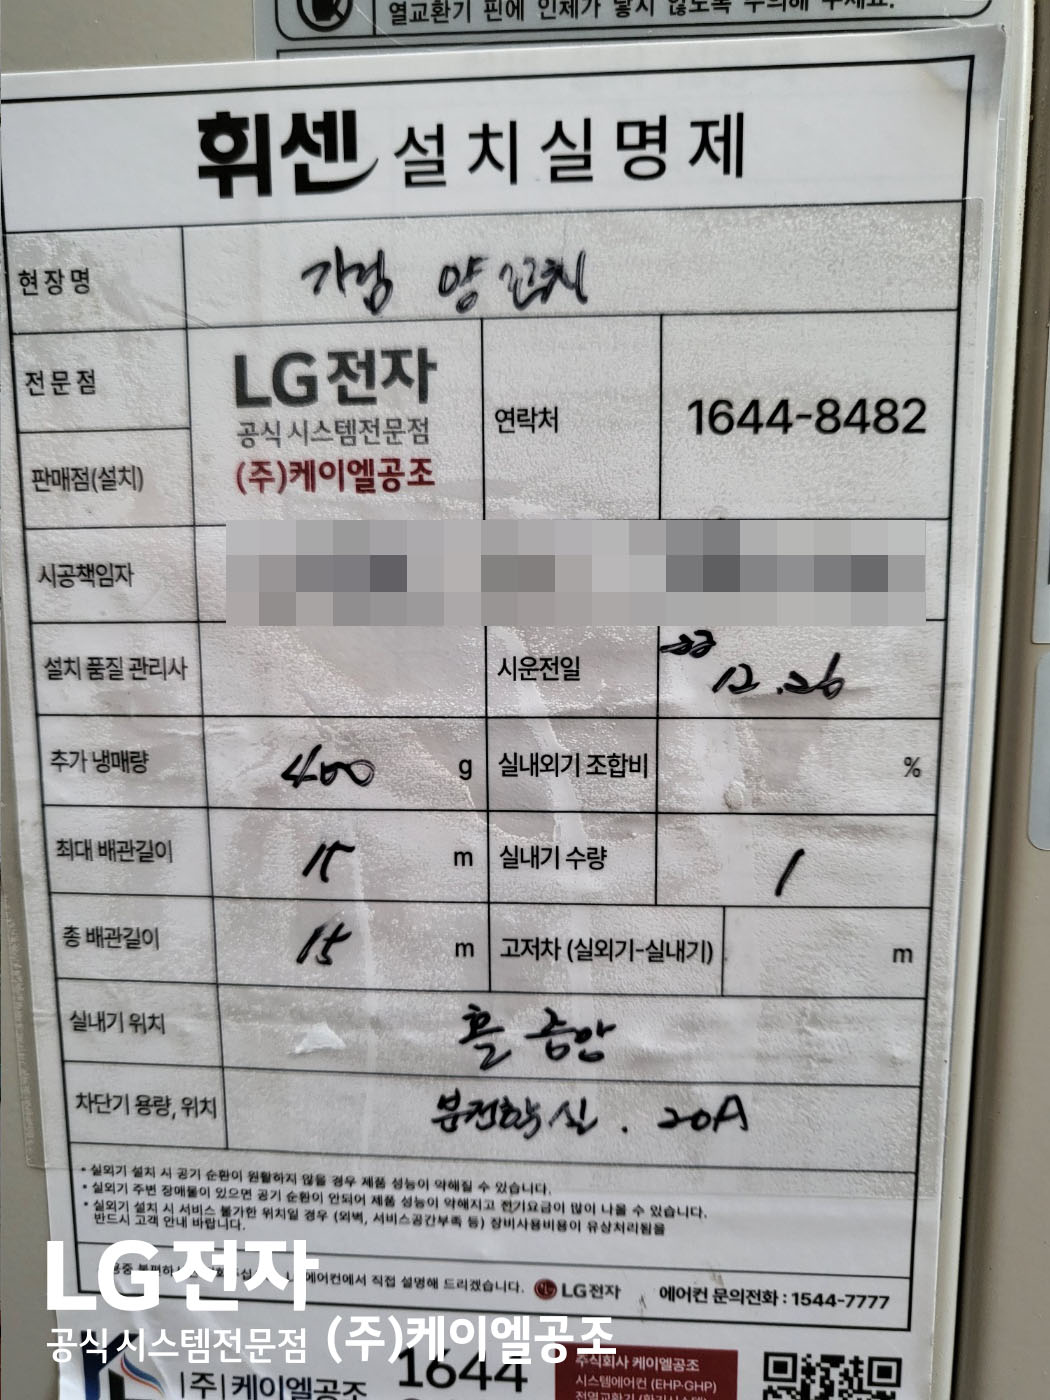 열교환기 핀에 인체가 닿지 않도록 주의해 주세요.
휘센 설치실명제
현장명 가검 양꼬치
전문점
판매점(설치)
LG전자
공식 시스템전문점
(주)케이엘공조
연락처 1644-8482
시공책임자
설치 품질 관리사
시운전일 22 12.26
추가 냉매량 400 g
실내외기 조합비 %
최대 배관길이 15 m
실내기 수량 1
총 배관길이 15 m
고저차 (실외기-실내기) m
실내기 위치 홀 중앙
차단기 용량, 위치 분전함 실. 20A
• 실외기 설치 시 공기 순환이 원활하지 않을 경우 제품 성능이 약해질 수 있습니다.
• 실외기 주변 장애물이 있으면 공기 순환이 안되어 제품 성능이 약해지고 전기요금이 많이 나올 수 있습니다.
• 실외기 설치 시 서비스 불가한 위치일 경우 (외벽, 서비스공간부족 등) 장비사용비용이 유상처리됨을
반드시 고객 안내 바랍니다.
에어컨에서 직접 설명해 드리겠습니다. LG전자 에어컨 문의전화 : 1544-7777
LG전자
공식 시스템전문점 (주)케이엘공조
|주|케이엘공조
1644
주식회사 케이엘공조
시스템에어컨 (EHP·GHP)